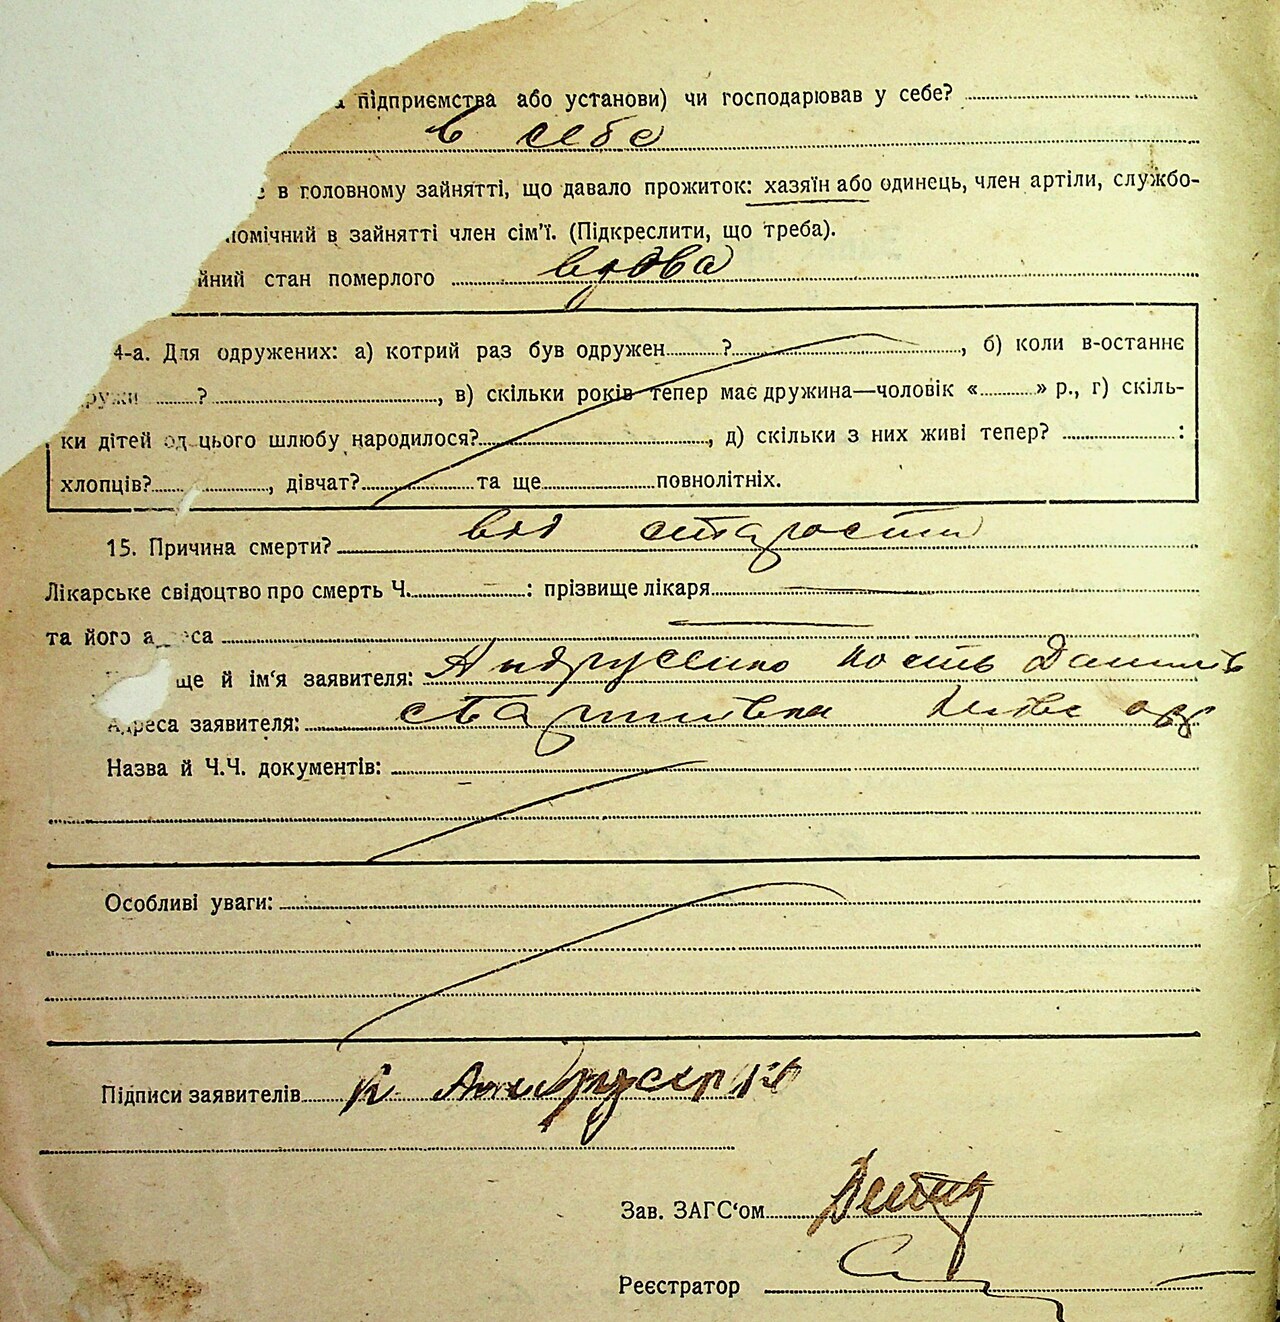 підприємства або установи) чи господарював у себе?
в себе
в головному зайнятті, що давало прожиток: хазяїн або одинець, член артіли, службо-
помічний в зайнятті член сім'ї. (Підкреслити, що треба).
йний стан померлого вдова
4-а. Для одружених: а) котрий раз був одружен ? , б) коли в-останнє
? , в) скільки років тепер має дружина—чоловік « » р., г) скіль-
ки дітей од цього шлюбу народилося? , д) скільки з них живі тепер? :
хлопців? , дівчат? та ще повнолітніх.
15. Причина смерти? від старости
Лікарське свідоцтво про смерть Ч. : прізвище лікаря
та його адреса
ще й ім'я заявителя: Андрусенко Кость Данил
Адреса заявителя:
Назва й Ч.Ч. документів:
Особливі уваги:
Підписи заявителів К Андрусенко
Зав. ЗАГС'ом
Реєстратор